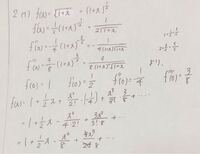 2 (9) f(x) = √1+x = (1+x)^{1/2}
f'(x) = 1/2 (1+x)^{-1/2} = 1/(2√1+x)
f''(x) = -1/4 (1+x)^{-3/2} = -1/(4(1+x)√1+x)
f'''(x) = 3/8 (1+x)^{-5/2} = 3/(8(1+x)²√1+x)
f(0) = 1 f'(0) = 1/2 f''(0) = -1/4 f'''(0) = 3/8
f(x) = 1 + 1/2 x + x²/2! · (-1/4) + x³/3! · 3/8 + ...
= 1 + 1/2 x - x²/(4·2!) + 3x³/(3!·8) + ...
= 1 + 1/2 x - x²/8 + + ...